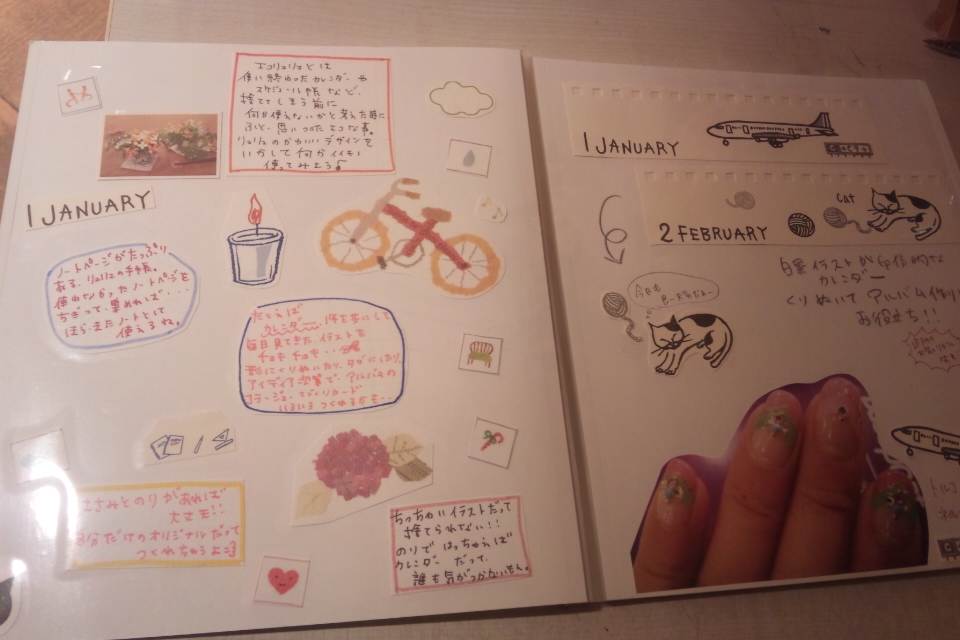 エコリュリュとは
使い終わったカレンダーや
スケジュール帳など、
捨ててしまう前に
何か使えないかと考えた時に
ふと、思いついたエコな事。
リュリュのかわいいデザインを
いかして何かイイモノ
使ってみよう
1 JANUARY
ノートページがたっぷり
ある、リュリュの手帳。
使わなかったノートページを
ちぎって、集めれば・・・
ほら、またノートとして
使えるね。
たとえば
カレンダー。1年を通して
毎日見てきたイラストを
チョキチョキ・・
形にくりぬいたり、タグにしたり、
アイディア次第で、アルバムの
コラージュ、てづくりカード
いろいろつくれるかも・・
はさみとのりがあれば
大丈夫!!
自分だけのオリジナルだって
つくれちゃうよ
ちっちゃいイラストだって
捨てられない!!
のりではっちゃえば
カレンダーだって、
誰も気がつかないもん。
1 JANUARY
2 FEBRUARY
CAT
今日も
白黒イラストが印象的な
カレンダー
くりぬいてアルバム作りに
お役立ち!!